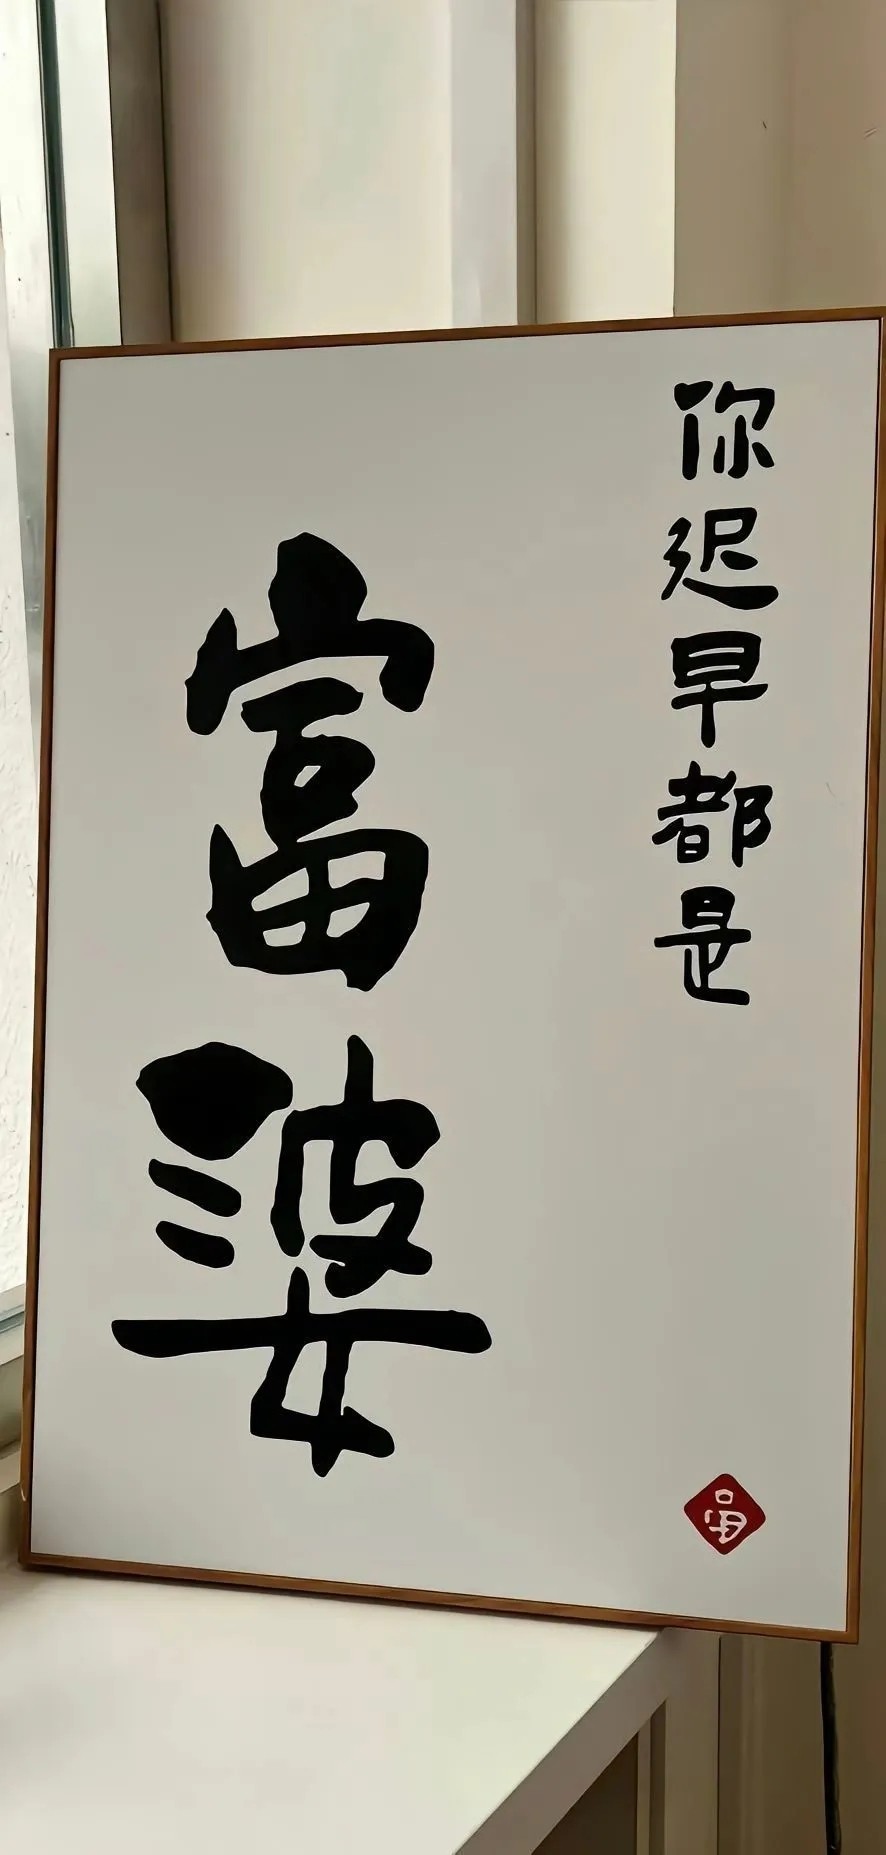 你迟早都是
富婆
畐